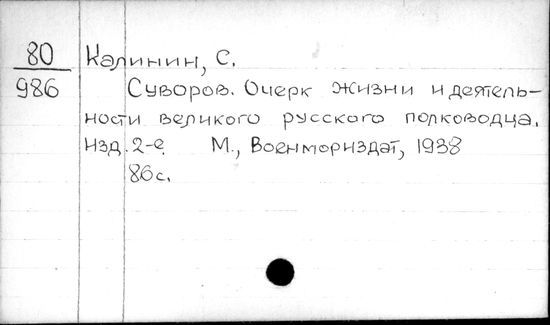 80 Калинин, С.
986 Суворов. Очерк жизни и деятель-
ности великого русского полководца.
Изд. 2-е. М., Военмориздат, 1938
86 с.